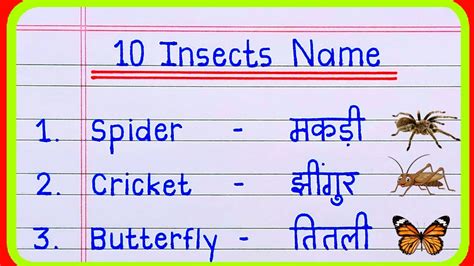 10 Insects Name
1. Spider - मकड़ी
2. Cricket - झींगुर
3. Butterfly - तितली